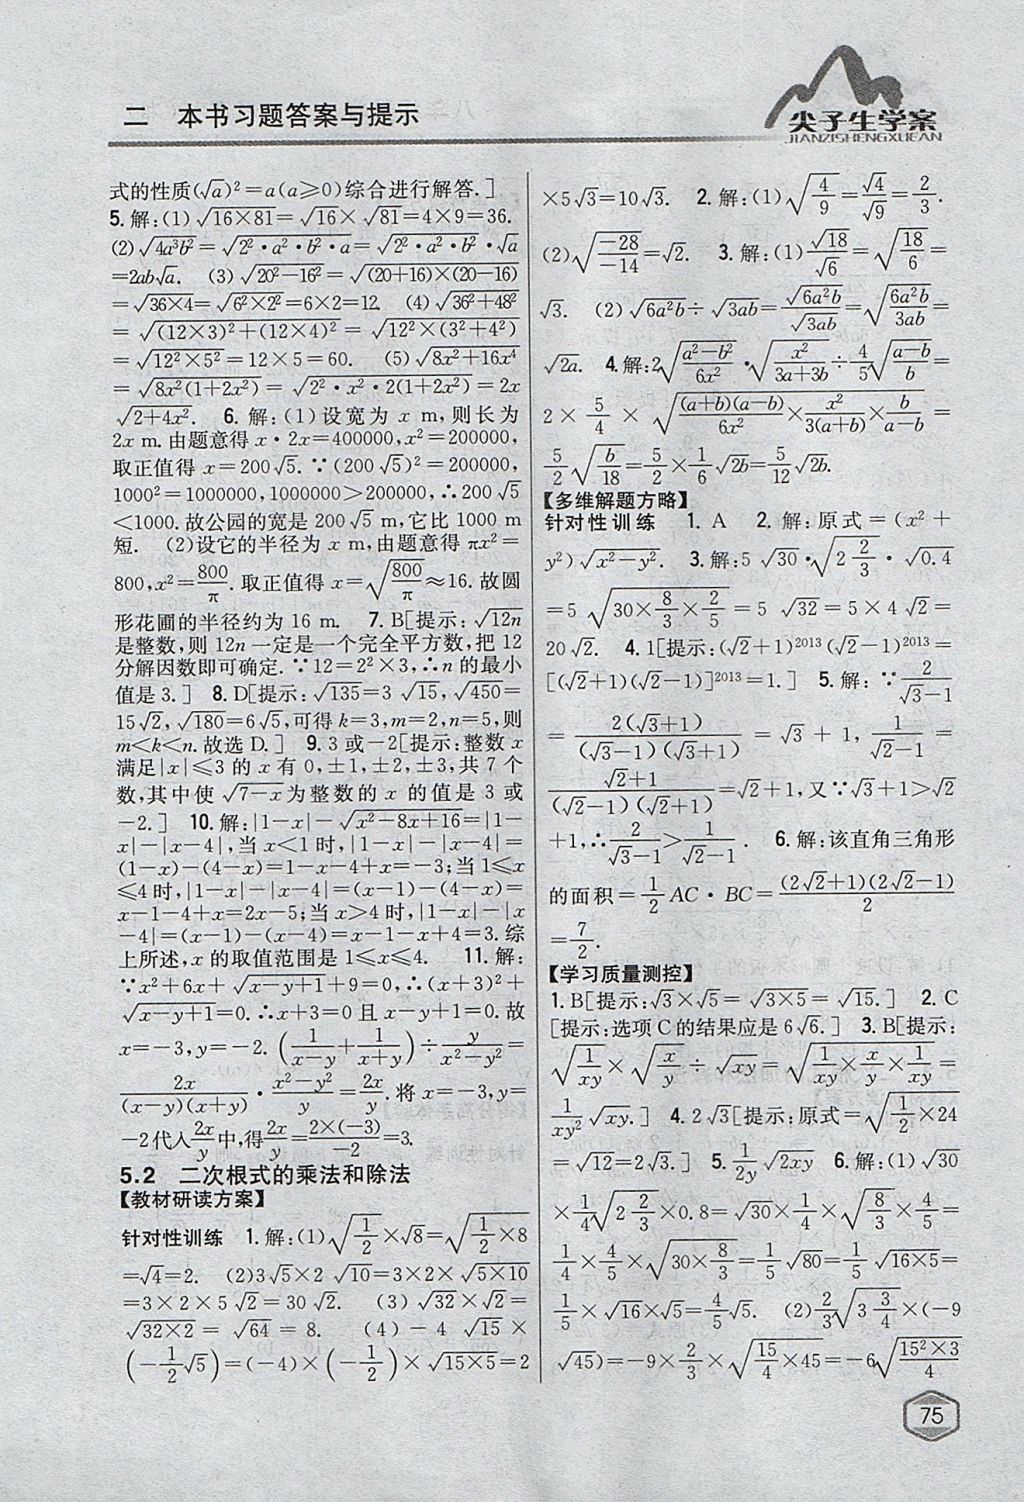 二 本书习题答案与提示
尖子生学案
JIANZISHENGXUEAN
式的性质(√a)²=a(a≥0)综合进行解答.]
5.解:(1)√(16×81)=√16×√81=4×9=36.
(2)√(4a³b²)=√(2²·a²·b²·a)=√(2²·a²·b²)·√a
=2ab√a. (3)√(20²-16²)=√((20+16)×(20-16))
=√(36×4)=√(6²×2²)=6×2=12. (4)√(36²+48²)
=√((12×3)²+(12×4)²)=√(12²×(3²+4²))
=√(12²×5²)=12×5=60. (5)√(8x²+16x⁴)
=√(8x²(1+2x²))=√(2²·x²·2(1+2x²))=2x
√(2+4x²). 6.解:(1)设宽为 x m,则长为
2x m.由题意得 x·2x=400000,x²=200000,
取正值得 x=200√5.∵(200√5)²=200000,
1000²=1000000,1000000>200000,∴200√5
<1000.故公园的宽是 200√5 m,它比 1000 m
短. (2)设它的半径为 x m,由题意得 πx²=
800,x²=800/π.取正值得 x=√(800/π)≈16.故圆
形花圃的半径约为 16 m. 7.B[提示:√(12n)
是整数,则 12n 一定是一个完全平方数,把 12
分解因数即可确定.∵12=2²×3,∴n 的最小
值是 3.] 8.D[提示:√135=3√15,√450=
15√2,√180=6√5,可得 k=3,m=2,n=5,则
m<k<n.故选 D.] 9.3 或-2[提示:整数 x
满足|x|≤3 的 x 有 0,±1,±2,±3,共 7 个
数,其中使√(7-x)为整数的 x 的值是 3 或
-2.] 10.解:|1-x|-√(x²-8x+16)=|1-
x|-|x-4|,当 x<1 时,|1-x|-|x-4|=
(1-x)-(4-x)=1-x-4+x=-3;当 1≤x
≤4 时,|1-x|-|x-4|=(x-1)-(4-x)=
x-1-4+x=2x-5;当 x>4 时,|1-x|-|x
-4|=(x-1)-(x-4)=x-1-x+4=3.综
上所述,x 的取值范围是 1≤x≤4. 11.解:
∵x²+6x+√(x-y+1)+9=0,∴(x+3)²+
√(x-y+1)=0.∴x+3=0 且 x-y+1=0.故
x=-3,y=-2.(1/(x-y)+1/(x+y))÷y/(x²-y²)=
2x/((x-y)(x+y))·(x²-y²)/y=2x/y.将 x=-3,y=
-2代入2x/y中,得2x/y=(2×(-3))/(-2)=3.
5.2 二次根式的乘法和除法
【教材研读方案】
针对性训练 1.解:(1)√(1/2)×√8=√(1/2×8)
=√4=2. (2)3√5×2√10=3×2×√(5×10)
=3×2×5√2=30√2. (3)√32×√2=
√(32×2)=√64=8. (4)-4√15×
(-1/2√5)=(-4)×(-1/2)×√(15×5)=2
×5√3=10√3. 2.解:(1)√(4/9)=√4/√9=2/3.
(2)√(-28/-14)=√2. 3.解:(1)√18/√6=√(18/6)=
√3. (2)√(6a²b)÷√(3ab)=√(6a²b)/√(3ab)=√(6a²b/3ab)=
√(2a). 4.解:2√((a²-b²)/6x²)·√(x²/(3a+3b))÷4/5√((a-b)/b)=
2×5/4×√((a+b)(a-b)/6x²×x²/3(a+b)×b/(a-b))=
5/2√(b/18)=5/2×1/6√(2b)=5/12√(2b).
【多维解题方略】
针对性训练 1.A 2.解:原式=(x²+
y²)√(x²-y²). 3.解:5√30·√(2 2/3)·√0.4
=5√(30×8/3×2/5)=5√32=5×4√2=
20√2. 4.1[提示:(√2+1)²⁰¹³(√2-1)²⁰¹³=
[(√2+1)(√2-1)]²⁰¹³=1.] 5.解:∵2/(√3-1)
=2(√3+1)/((√3-1)(√3+1))=√3+1,1/(√2-1)=
(√2+1)/((√2-1)(√2+1))=√2+1,又∵√3+1>√2
+1,∴2/(√3-1)>1/(√2-1). 6.解:该直角三角形
的面积=1/2AC·BC=(2√2+1)(2√2-1)/2
=7/2.
【学习质量测控】
1.B[提示:√3×√5=√(3×5)=√15.] 2.C
[提示:选项C的结果应是6√6.] 3.B[提示:
√(1/xy)×√(x/y)÷√(xy)=√(1/xy×x/y×1/xy)=
1/xy²√(xy).] 4.2√3[提示:原式=√(1/2×24)
=√12=2√3.] 5.1/2y√(2xy) 6.解:(1)√30
×1/4√(2 2/3)×0.8=√30×1/4×√(8/3)×4/5=
1/4×4/5×√(30×8/3)=1/5√80=1/5√(16×5)=
1/5×√16×√5=4/5√5. (2)2/3√(3 3/4)×(-9
√45)=-9×2/3×√(15/4×45)=-6√(15²×3/4)
75